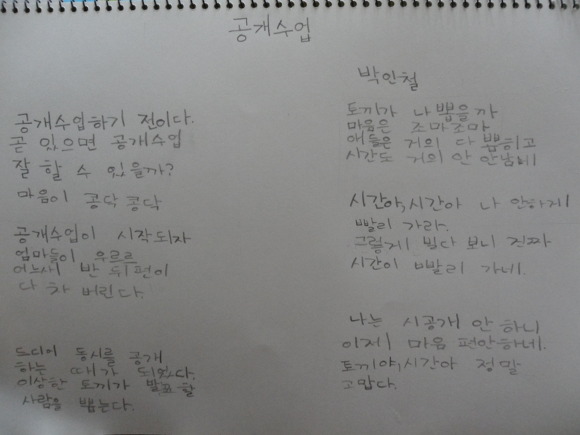 공개수업
박인철
공개수업하기 전이다.
곧 있으면 공개수업
잘 할 수 있을까?
마음이 콩닥콩닥
공개수업이 시작되자
엄마들이 우르르
어느새 반 뒤편이
다 차 버린다.
드디어 동시를 공개
하는 때가 되왔다.
이상한 토끼가 발표할
사람을 뽑는다.
토끼가 나 뽑을까
마음은 조마조마
애들은 거의 다 뽑히고
시간도 거의 안 남네
시간아, 시간아 나 안하게
빨리 가라.
그렇게 빌다 보니 진짜
시간이 빨리 가네.
나는 시공개 안 하니
이제 마음 편안하네.
토끼야, 시간아 정말
고맙다.